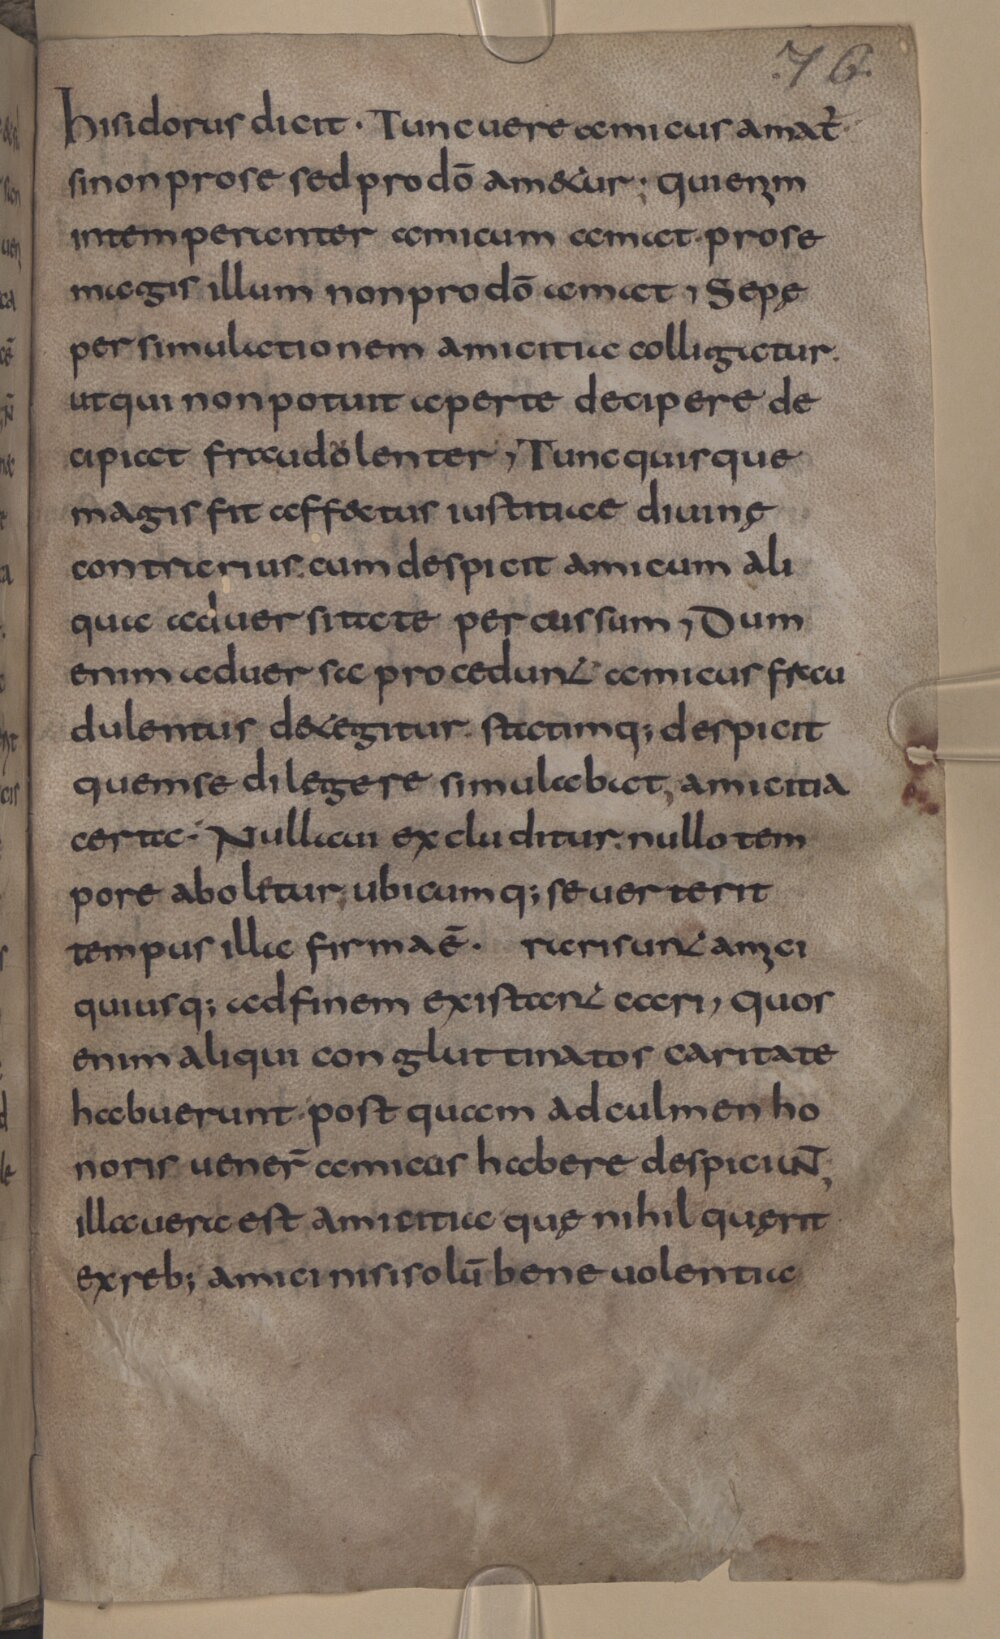 76.
hisidorus dicit · Tunc uere amicus amat̃
si non pro se sed pro dō am&ur; qui enim
intemperanter amicum amat · pro se
magis illum non pro dō amat, Sepę
per simulationem amicitia colligatur.
ut qui non potuit aperte decipere de
cipiat fraudolenter, Tunc quisque
magis fit aff&ctus iustitiae diuinę
contrarius. cum despicit amicum ali
qua aduersitate percussum, Dum
enim aduersa procedunt amicus frau
dulentus detegitur. statimq; despicit
quem se dilegere simulabat, amicitia
certa · Nulla ui excluditur. nullo tem
pore abolitur, ubicumq; se uerterit
tempus illa firma ē · rari sunt amici
quiusq; ad finem existant cari, quos
enim aliqui congluttinatos caritate
habuerunt · post quam ad culmen ho
noris uener̄ amicus habere despiciuñ,
illa uera est amicitia quę nihil quęrit
ex reb; amici nisi solū beneuolentia